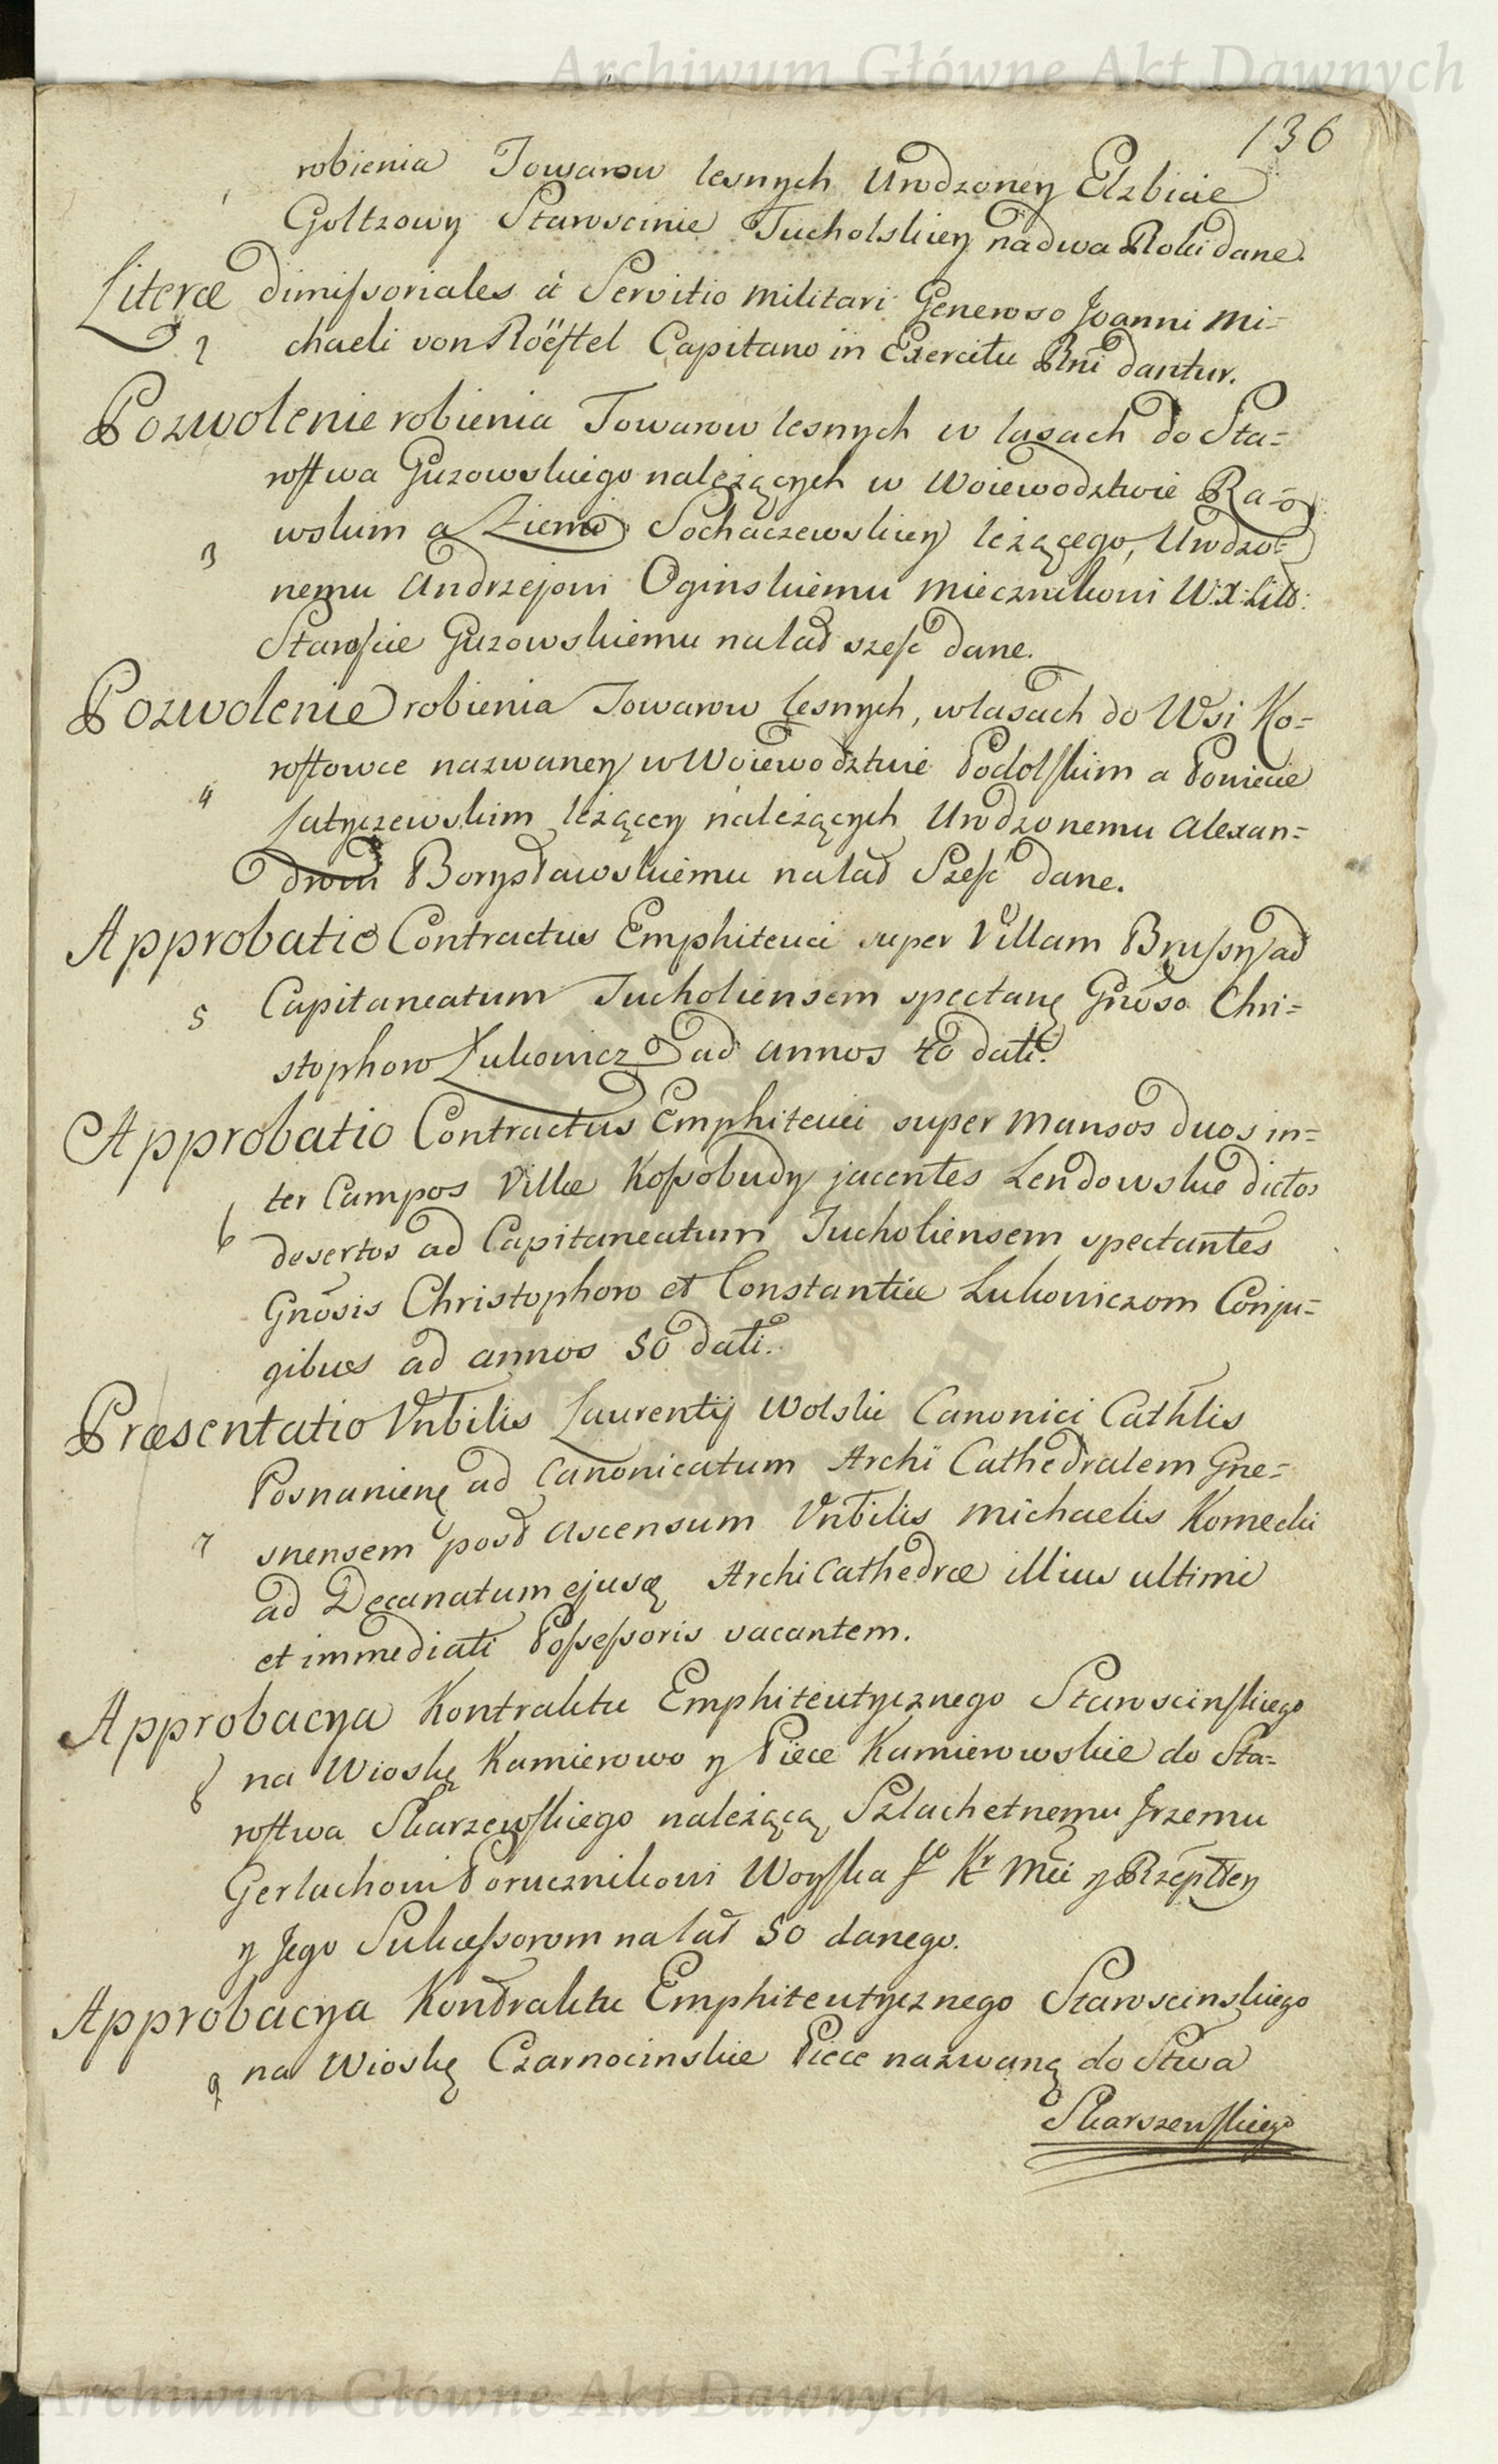 Archiwum Główne Akt Dawnych
136
robienia Towarow lesnych Urodzoney Elzbicie
1 Goltzowy Staroscinie Tucholskiey na dwa Roki dane.
Literæ dimissoriales à Servitio militari Generoso Joanni Mi=
2 chaeli von Röëstel Capitano in Exercitu Rni dantur.
Pozwolenie robienia Towarow lesnych w lasach do Sta=
rostwa Guzowskiego należących w Woiewodztwie Ra=
3 wskim a Ziemi Sochaczewskiey leżącego, Urodzo=
nemu Andrzejowi Oginskiemu Miecznikowi W:X:Litt:
Staroście Guzowskiemu na lat sześć dane.
Pozwolenie robienia Towarow lesnych, w lasach do Wsi Ko=
rostowce nazwaney w Woiewodztwie Podolskim a Powiecie
4 Latyczewskim leżącey należących Urodzonemu Alexan=
drowi Borysławskiemu na lat Sześć dane.
Approbatio Contractus Emphiteuci super Villam Brussy ad
5 Capitaneatum Tucholiensem spectanę Gnõso Chri=
stophoro Łukowicz ad annos 40 dati.
Approbatio Contractus Emphiteuci super Mansos duos in=
ter Campos Villæ Kossobudy jacentes Lendowskie dictos
6 desertos ad Capitaneatum Tucholiensem spectantes
Gnõsis Christophoro et Constantiæ Lukowiczom Conju=
gibus ad annos 50 dati.
Præsentatio Vnbilis Laurentij Wolski Canonici Cathlis
Posnanienę ad Canonicatum Archi Cathedralem Gne=
7 snensem post ascensum Vnbilis Michaelis Komecki
ad Decanatum ejusę Archi Cathedræ illius ultimi
et immediati Possessoris vacantem.
Approbacya Kontraktu Emphiteutycznego Staroscinskiego
8 na Wioskę Kamierowo y Piece Kamierowskie do Sta=
rostwa Skarzewskiego należącą Szlachetnemu Jrzemu
Gerlachowi Porucznikowi Woyska Jº Kr Mci y Rzepltey
y Jego Sukcessorom na lat 50 danego.
Approbacya Kontraktu Emphiteutycznego Staroscinskiego
9 na Wioskę Czarnocinskie Piece nazwaną do Stwa
Skarszewskiego
Archiwum Główne Akt Dawnych